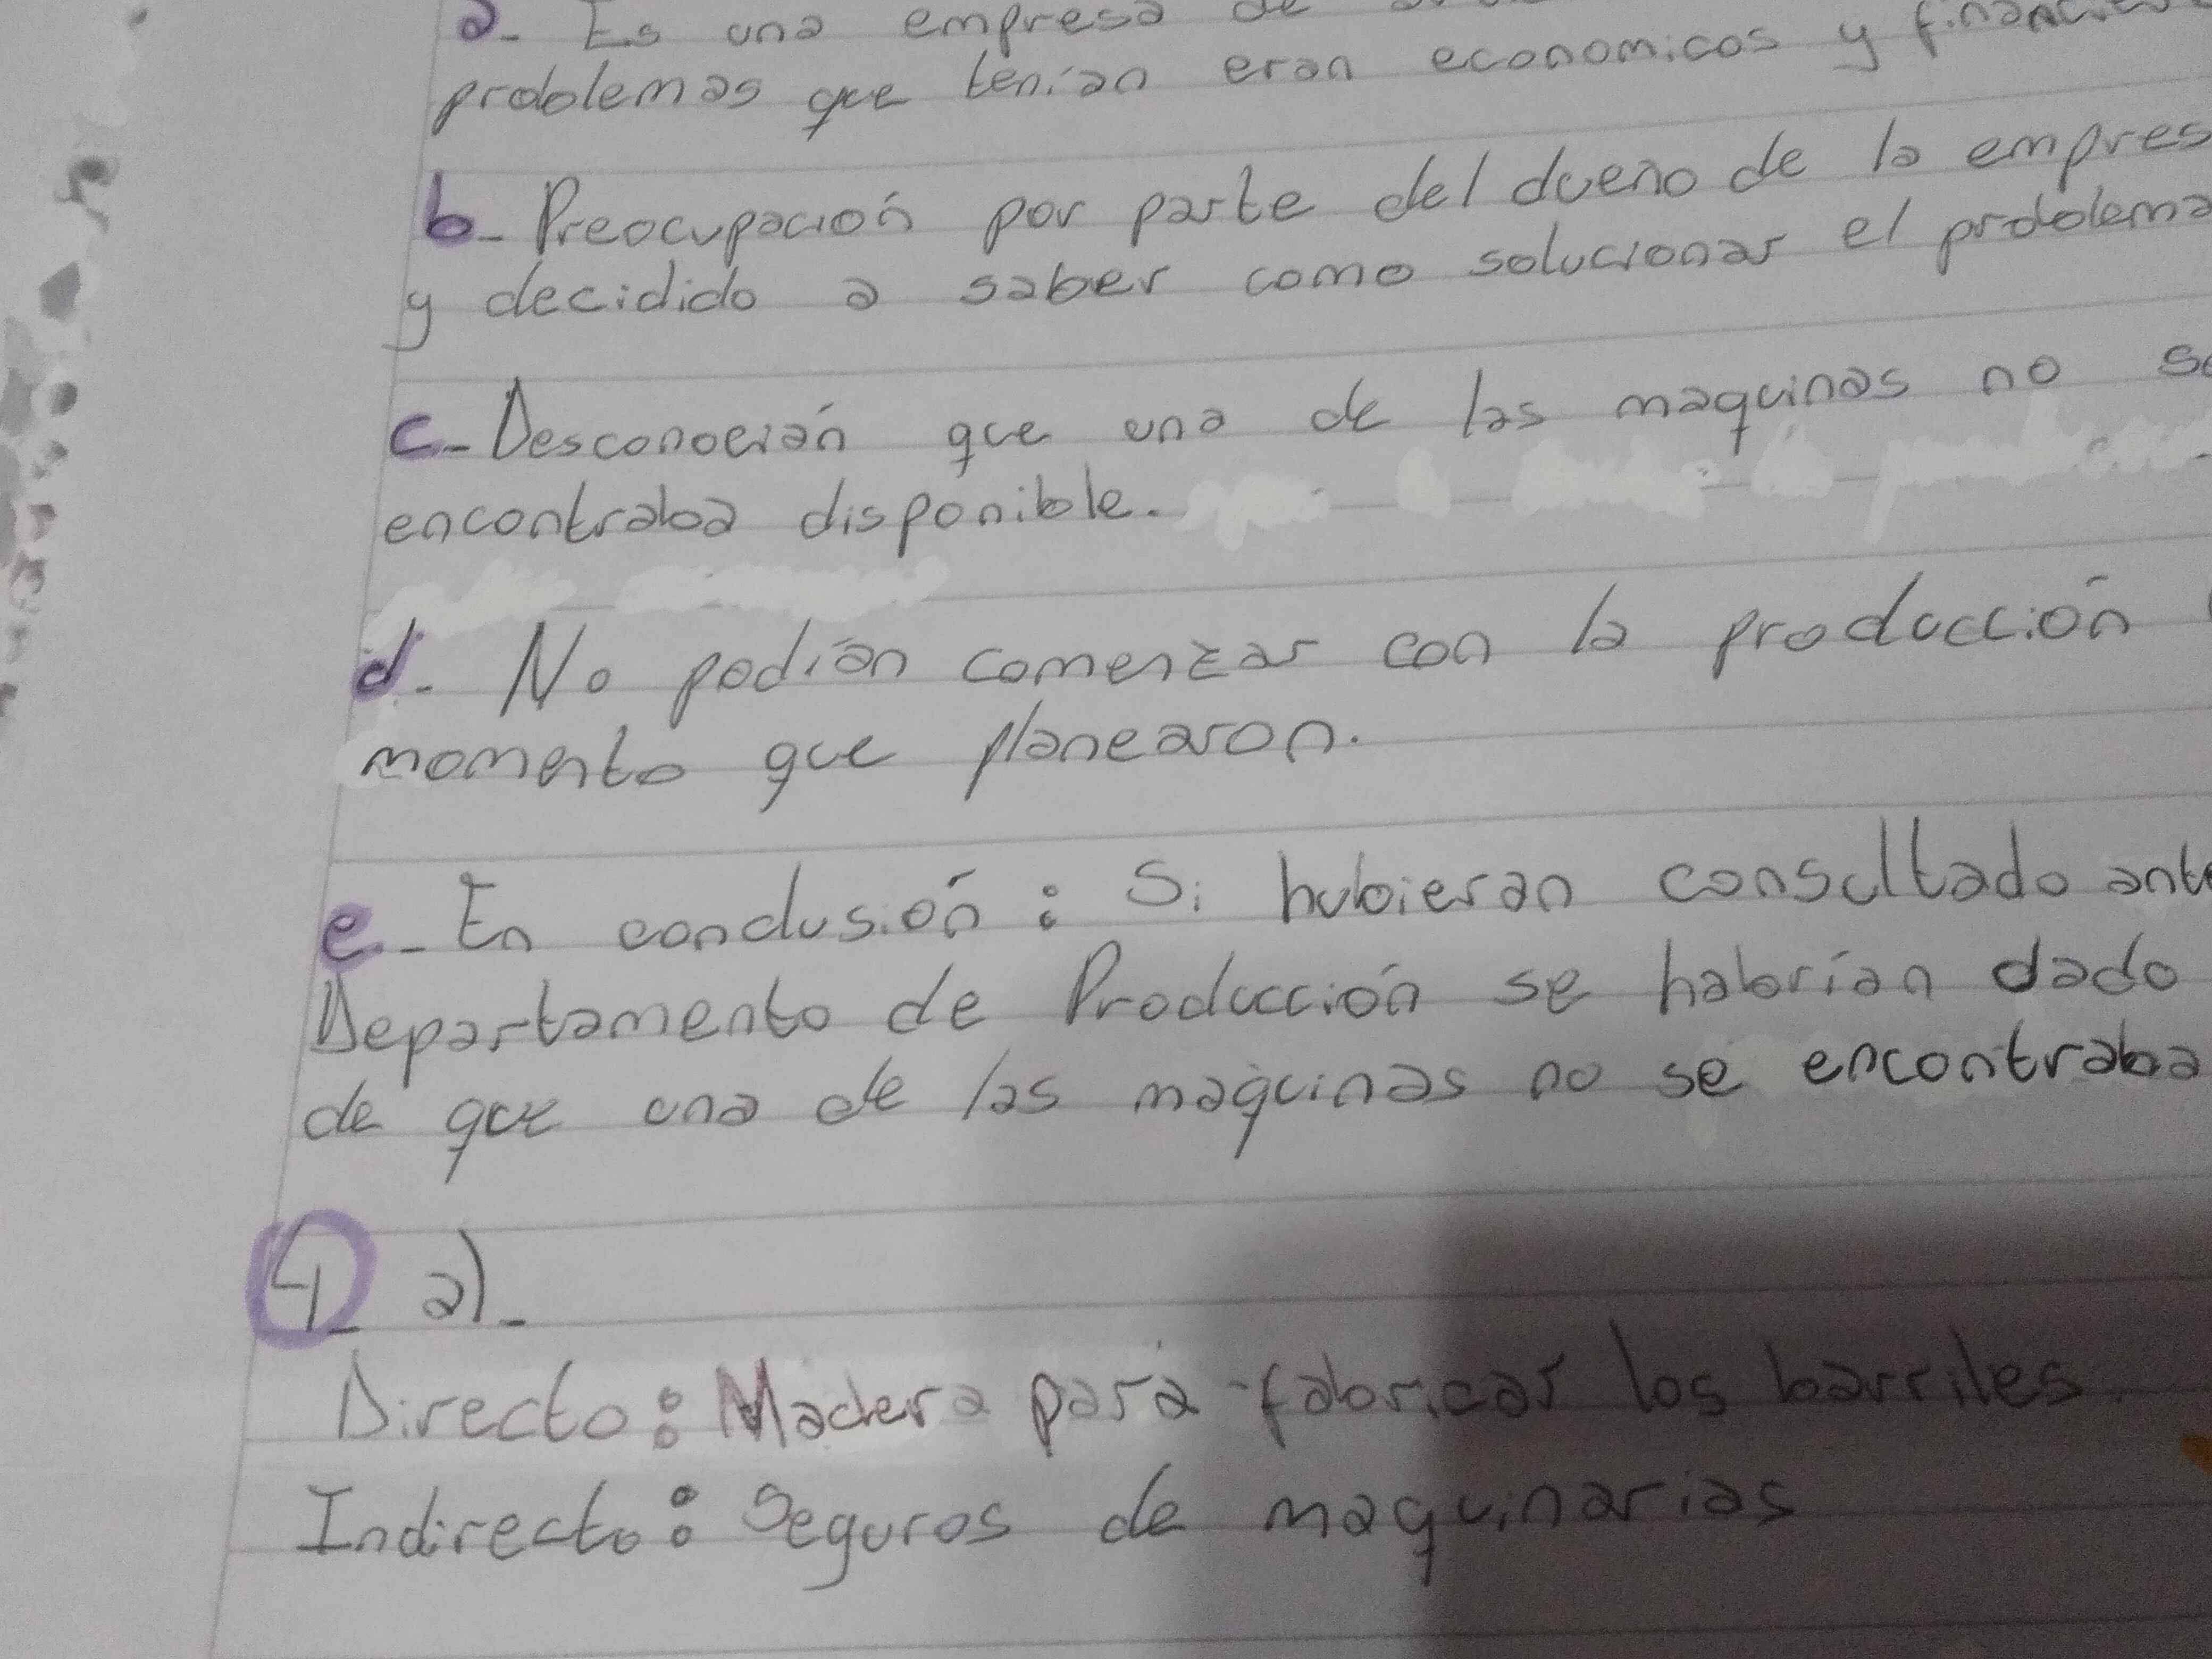 a- Es una empresa de
problemas que tenían eran economicos y
b- Preocupación por parte del dueño de la empres
y decidido a saber como solucionar el problema
c- Desconocían que una de las maquinas no se
encontraba disponible.
d- No podían comenzar con la producción
momento que planearon.
e- En conclusión: Si hubieran consultado ante
Departamento de Producción se habrían dado
de que una de las maquinas no se encontraba
4- a)-
Directo: Madera para fabricar los barriles.
Indirecto: Seguros de maquinarias